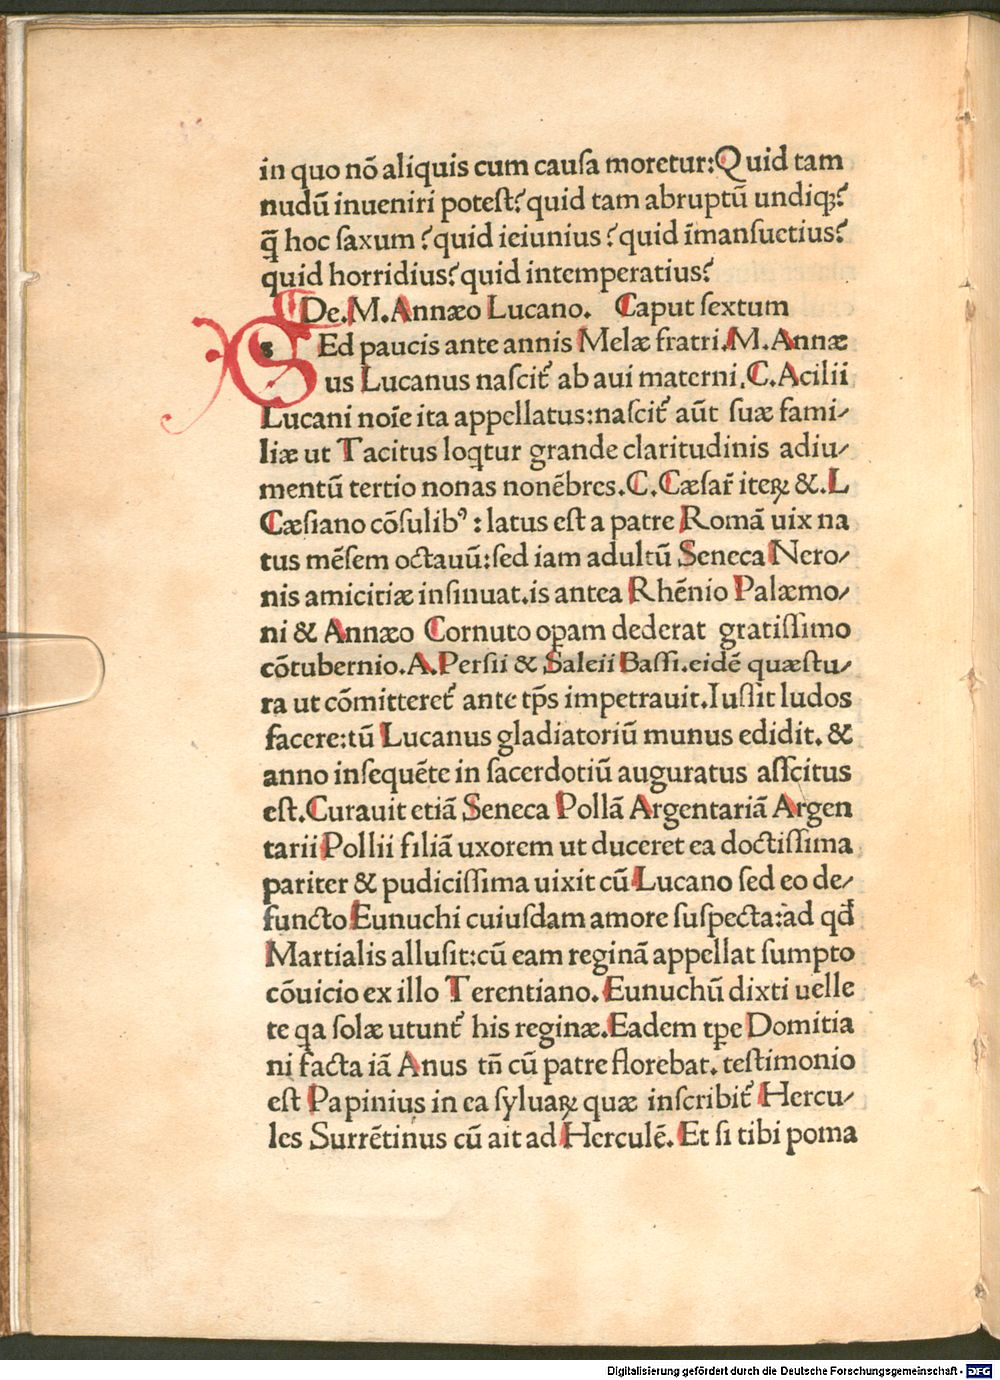 in quo nõ aliquis cum cauſa moretur:Quid tam
nudũ inueniri poteſt?quid tam abruptũ undiqꝫ?
q̃ hoc ſaxum?quid ieiunius?quid ĩmanſuetius?
quid horridius?quid intemperatius?
De.M.Annæo Lucano. Caput ſextum
SEd paucis ante annis Melæ fratri.M.Annæ
us Lucanus naſcit᷑ ab aui materni.C.Acilii
Lucani noĩe ita appellatus:naſcit᷑ aũt ſuæ fami/
liæ ut Tacitus loqtur grande claritudinis adiu/
mentũ tertio nonas nonẽbres.C.Cæſar̃ iteꝝ &.L
Cæſiano cõſulibꝰ:latus eſt a patre Romã uix na
tus mẽſem octauũ:ſed iam adultũ Seneca Nero/
nis amicitiæ inſinuat.is antea Rhẽnio Palæmo/
ni & Annæo Cornuto oꝑam dederat gratiſſimo
cõtubernio.A.Perſii & Saleii Baſſi.eidẽ quæſtu/
ra ut cõmitteret᷑ ante tp̃s impetrauit.Iuſſit ludos
facere:tũ Lucanus gladiatoriũ munus edidit.&
anno inſequẽte in ſacerdotiũ auguratus aſſcitus
eſt.Curauit etiã Seneca Pollã Argentariã Argen
tarii Pollii filiã uxorem ut duceret ea doctiſſima
pariter & pudiciſſima uixit cũ Lucano ſed eo de/
functo Eunuchi cuiuſdam amore ſuſpecta:ad qd̃
Martialis alluſit:cũ eam reginã appellat ſumpto
cõuicio ex illo Terentiano.Eunuchũ dixti uelle
te qa ſolæ utunt᷑ his reginæ.Eadem tꝑe Domitia
ni facta iã Anus tñ cũ patre florebat.teſtimonio
eſt Papinius in ea ſyluaꝝ quæ inſcribit᷑ Hercu/
les Surrẽtinus cũ ait ad Herculẽ.Et ſi tibi poma
Digitalisierung gefördert durch die Deutsche Forschungsgemeinschaft - DFG